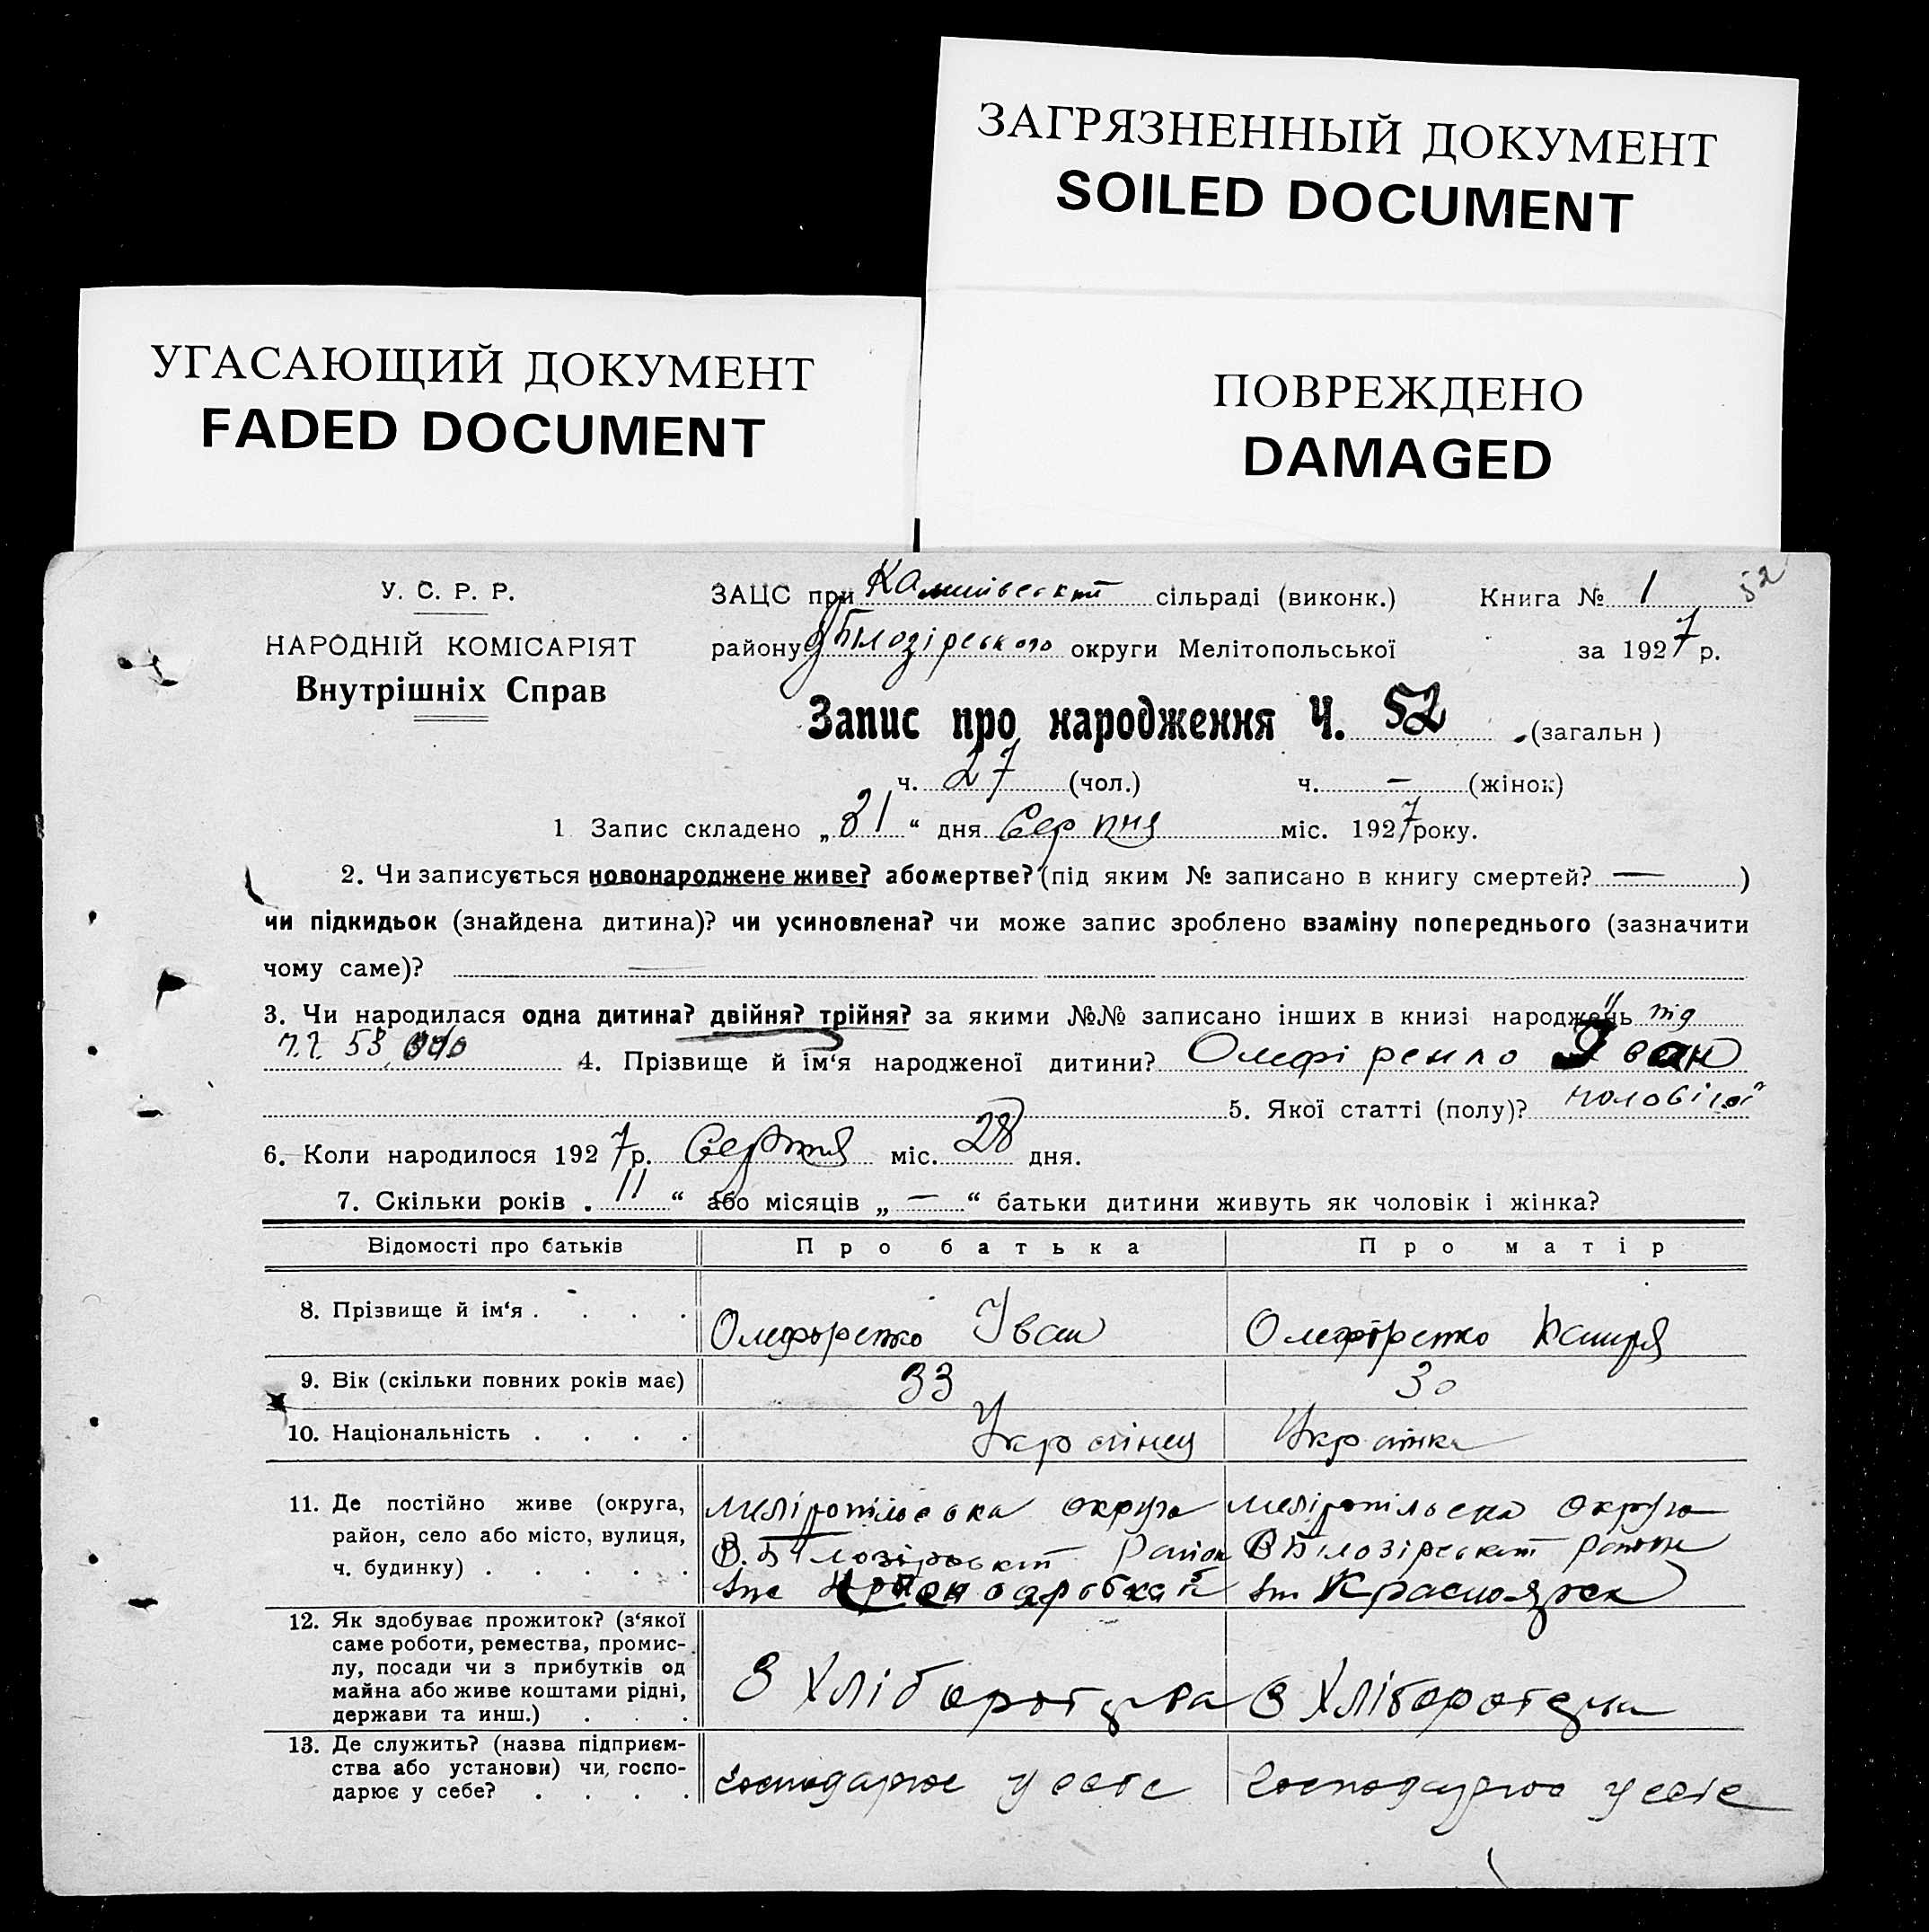 ЗАГРЯЗНЕННЫЙ ДОКУМЕНТ
SOILED DOCUMENT
УГАСАЮЩИЙ ДОКУМЕНТ
FADED DOCUMENT
ПОВРЕЖДЕНО
DAMAGED
У. С. Р. Р.
НАРОДНІЙ КОМІСАРІЯТ
Внутрішніх Справ
ЗАЦС при сільраді (виконк.) Книга № 1 52
району округи Мелітопольської за 1927 р.
Запис про народження Ч. 52 (загальн)
ч. 27 (чол.) ч. — (жінок)
1 Запис складено „31“ дня Серпня міс. 1927 року.
2. Чи записується новонароджене живе? або мертве? (під яким № записано в книгу смертей? — )
чи підкидьок (знайдена дитина)? чи усиновлена? чи може запис зроблено взаміну попереднього (зазначити
чому саме)? —
3. Чи народилася одна дитина? двійня? трійня? за якими №№ записано інших в книзі народжень під
53 4. Прізвище й ім‘я народженої дитини? Олефіренко Іван
5. Якої статті (полу)?
6. Коли народилося 1927 р. Серпня міс. 28 дня.
7. Скільки років „11“ або місяців „—“ батьки дитини живуть як чоловік і жінка?
Відомості про батьків Про батька Про матір
8. Прізвище й ім‘я . . . . Олефіренко Іван Олефіренко
9. Вік (скільки повних років має) 33 30
10. Національність . . . . Українец Українка
11. Де постійно живе (округа, округа округа
район, село або місто, вулиця, В. Білозірський Район В Білозірський район
ч. будинку) . . . . . Красноярск
12. Як здобуває прожиток? (з‘якої
саме роботи, ремества, промис-
лу, посади чи з прибутків од З Хліборобства З Хліборобства
майна або живе коштами рідні,
держави та инш.) . . .
13. Де служить? (назва підприєм-
ства або установи) чи, госпо- Господарює у себе Господарює у себе
дарює у себе? . . . .